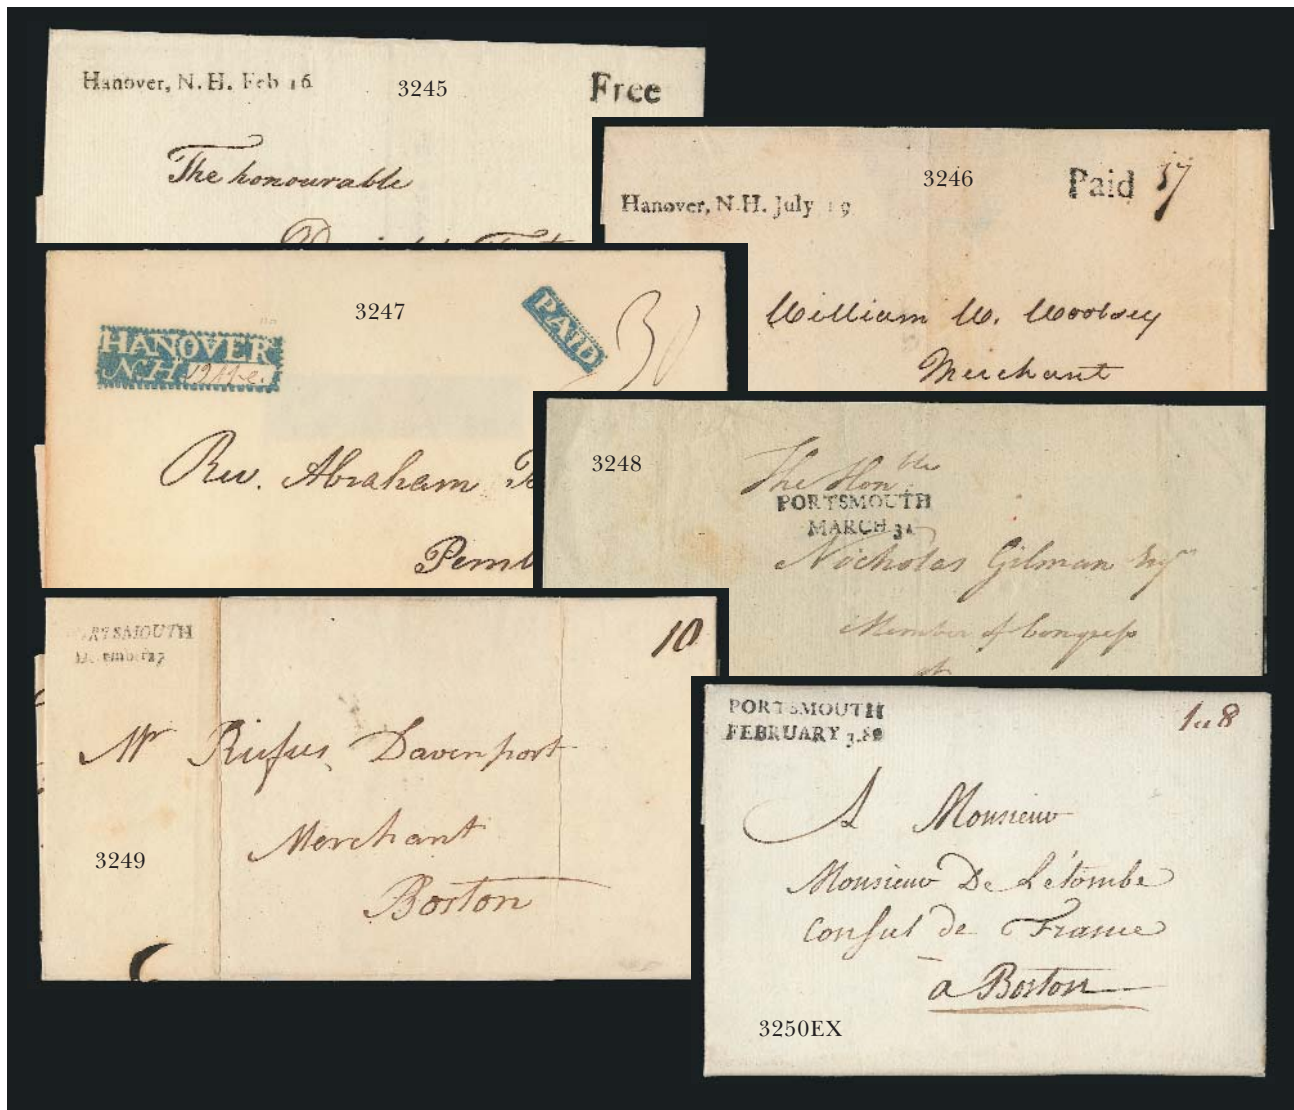 Hanover, N.H. Feb 16
3245
Free
The honourable
3246
Paid 37
Hanover, N.H. July 19
William W. Woolsey
Merchant
3247
HANOVER
N.H.
PAID
Rev. Abraham
Pemb
3248
The Honble
PORTSMOUTH
MARCH 31
Nicholas Gilman Esqr
Member of Congress
PORTSMOUTH
December 27
10
Mr Rufus Davenport
Merchant
Boston
3249
PORTSMOUTH
FEBRUARY 3.
1u8
A Monsieur
Monsieur De Létombe
Consul de France
a Boston
3250EX